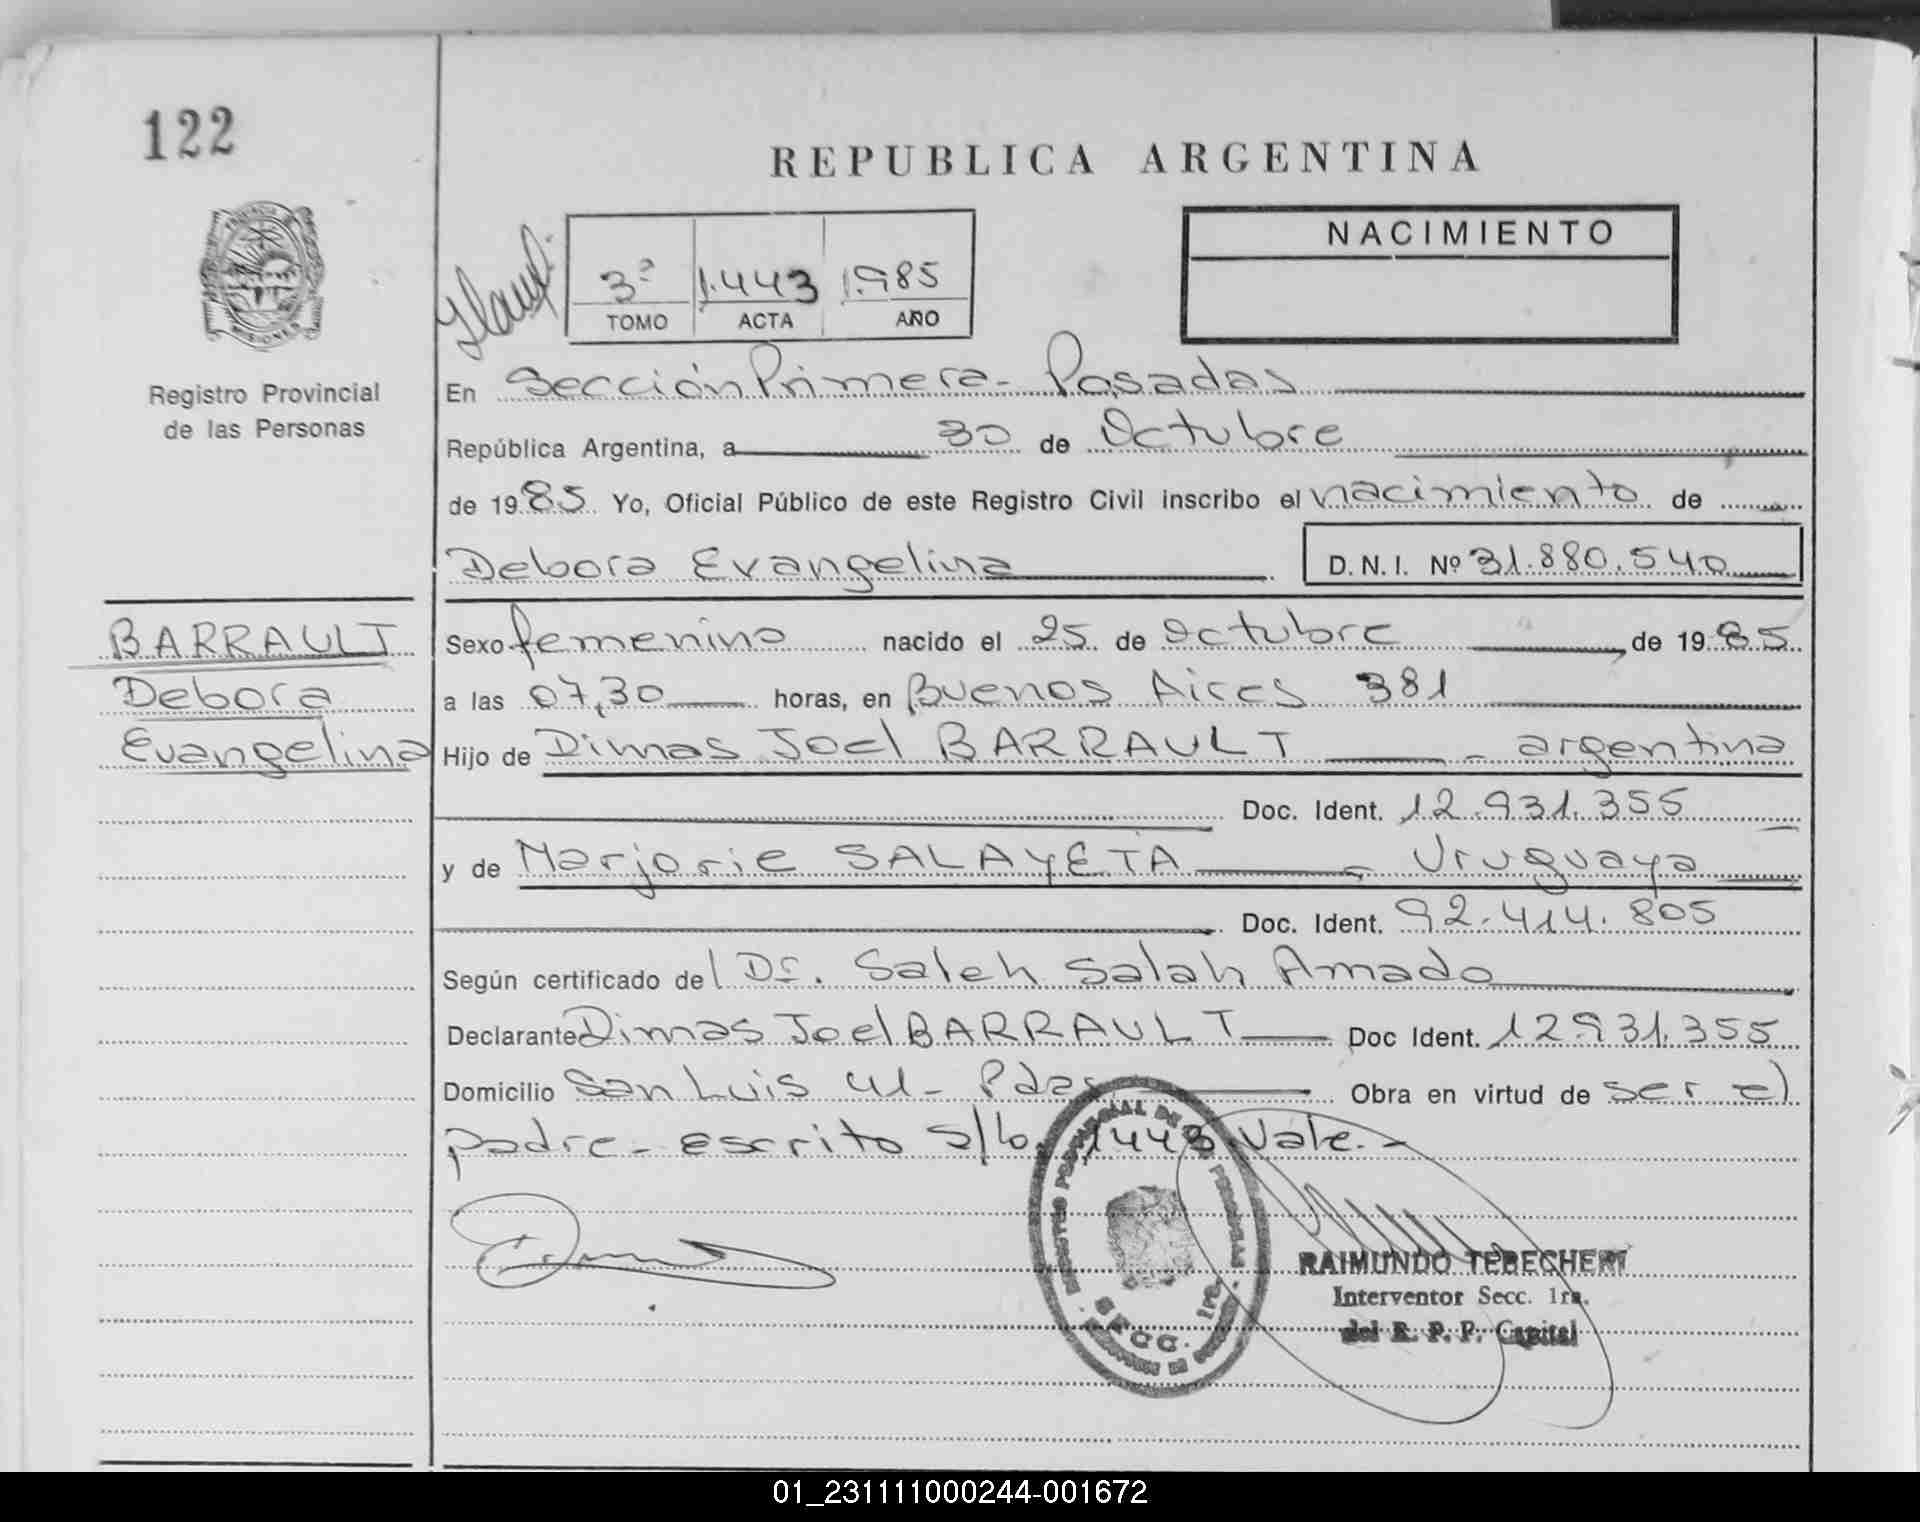 122
REPUBLICA ARGENTINA
NACIMIENTO
3º 1.443 1.985
TOMO ACTA AÑO
Registro Provincial
de las Personas
En Sección Primera- Posadas
República Argentina, a 30 de Octubre
de 1985 Yo, Oficial Público de este Registro Civil inscribo el nacimiento de
Debora Evangelina D.N.I. Nº 31.880.540
BARRAULT
Debora
Evangelina
Sexo femenino nacido el 25 de Octubre de 1985
a las 07,30 horas, en Buenos Aires 381
Hijo de Dimas Joel BARRAULT - argentina
Doc. Ident. 12.931.355
y de Marjorie SALAYETA - Uruguaya
Doc. Ident. 92.414.805
Según certificado del Dr. Saleh Salah Amado
Declarante Dimas Joel BARRAULT Doc Ident. 12931.355
Domicilio San Luis 41- Pdas Obra en virtud de ser el
padre- escrito s/b. 1443 Vale.-
RAIMUNDO TEBECHERI
Interventor Secc. 1ra.
del R. P. P. Capital
SECC. 1ra.
01_231111000244-001672